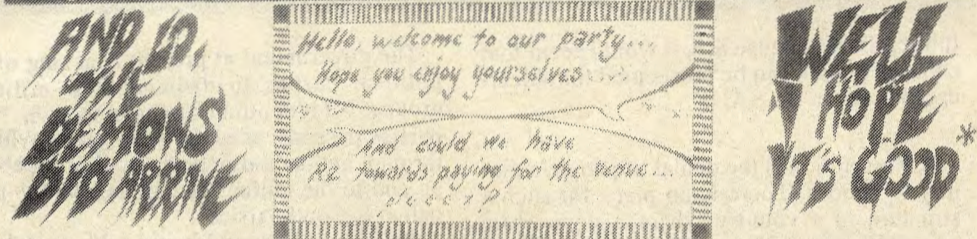 AND LO,
THE
DEMONS
DID ARRIVE
Hello, welcome to our party...
Hope you enjoy yourselves...
And could we have
R2 towards paying for the venue...
WELL
I HOPE
IT'S GOOD*